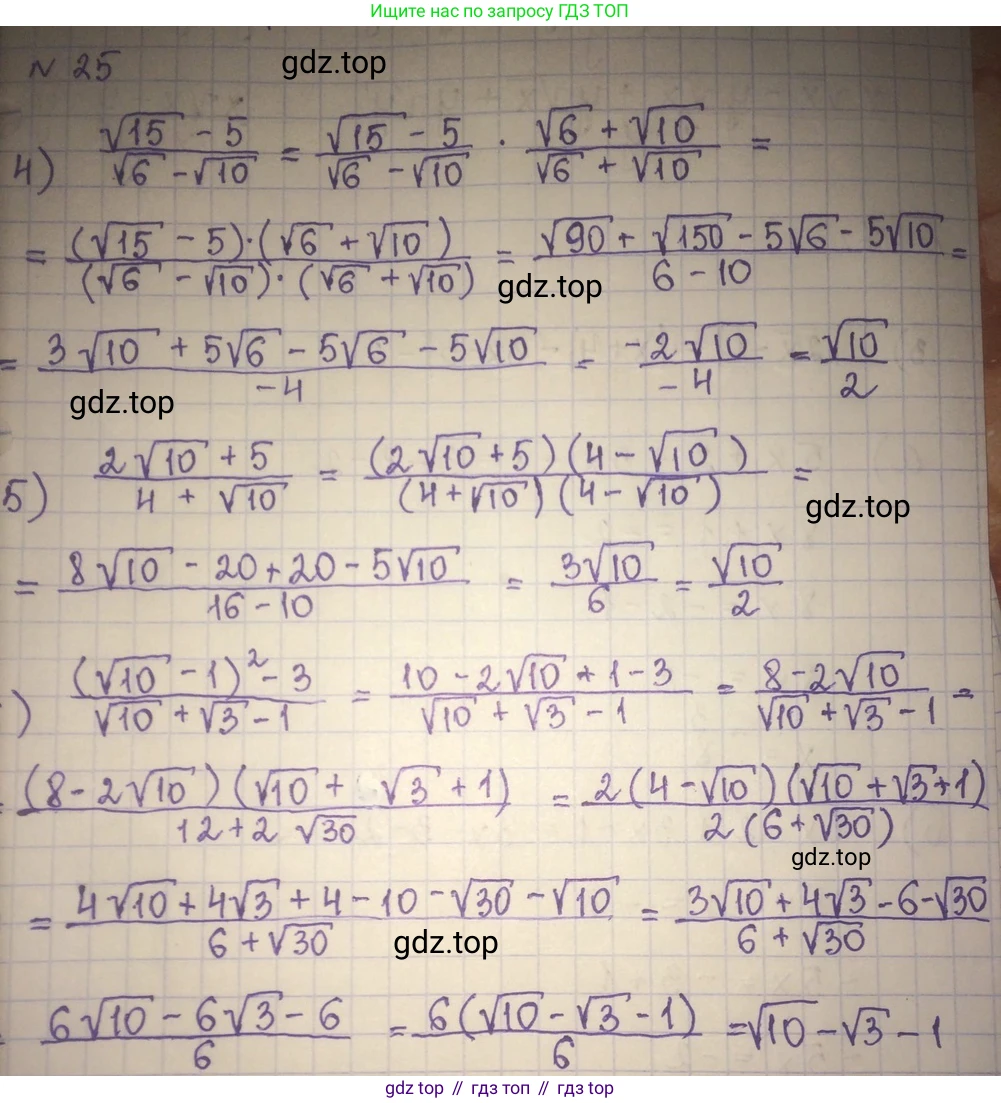 Ищите нас по запросу ГДЗ ТОП
№ 25 gdz.top
4) (√15 - 5)/(√6 - √10) = (√15 - 5)/(√6 - √10) · (√6 + √10)/(√6 + √10) =
= ((√15 - 5)·(√6 + √10))/((√6 - √10)·(√6 + √10)) = (√90 + √150 - 5√6 - 5√10)/(6 - 10) =
gdz.top
= (3√10 + 5√6 - 5√6 - 5√10)/(-4) = (-2√10)/(-4) = √10/2
gdz.top
5) (2√10 + 5)/(4 + √10) = ((2√10 + 5)(4 - √10))/((4 + √10)(4 - √10)) =
gdz.top
= (8√10 - 20 + 20 - 5√10)/(16 - 10) = 3√10/6 = √10/2
) ((√10 - 1)² - 3)/(√10 + √3 - 1) = (10 - 2√10 + 1 - 3)/(√10 + √3 - 1) = (8 - 2√10)/(√10 + √3 - 1) =
= ((8 - 2√10)(√10 + √3 + 1))/(12 + 2√30) = (2(4 - √10)(√10 + √3 + 1))/(2(6 + √30))
gdz.top
= (4√10 + 4√3 + 4 - 10 - √30 - √10)/(6 + √30) = (3√10 + 4√3 - 6 - √30)/(6 + √30)
gdz.top
(6√10 - 6√3 - 6)/6 = (6(√10 - √3 - 1))/6 = √10 - √3 - 1
gdz top // гдз топ // gdz top